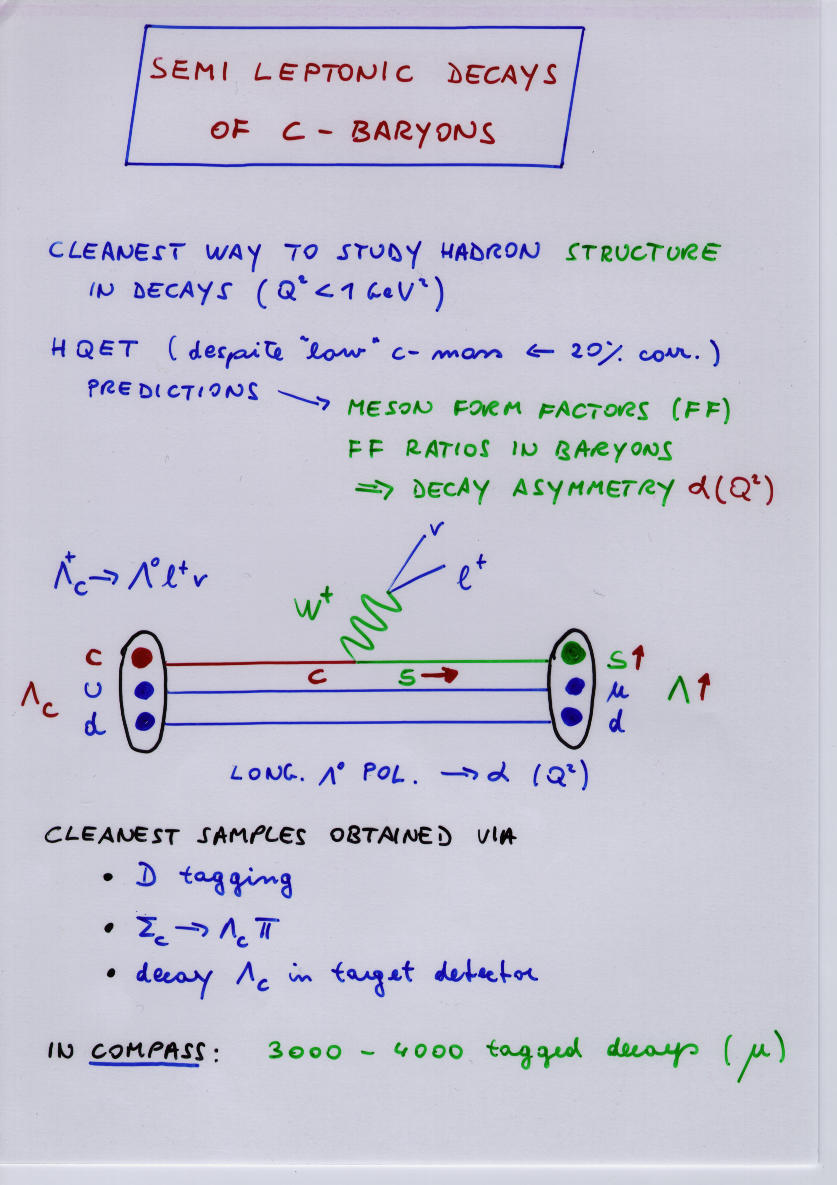 SEMI LEPTONIC DECAYS
OF C - BARYONS
CLEANEST WAY TO STUDY HADRON STRUCTURE
IN DECAYS (Q² < 1 GeV²)
HQET (despite "low" c-mass ← 20% corr.)
PREDICTIONS → MESON FORM FACTORS (FF)
FF RATIOS IN BARYONS
⇒ DECAY ASYMMETRY α(Q²)
Λc⁺ → Λ⁰ l⁺ ν
ν
l⁺
W⁺
c
u
d
Λc
c
s →
s↑
u
d
Λ↑
LONG. Λ⁰ POL. → α (Q²)
CLEANEST SAMPLES OBTAINED VIA
• D tagging
• Σc → Λc π
• decay Λc in target detector
IN COMPASS: 3000 - 4000 tagged decays (μ)